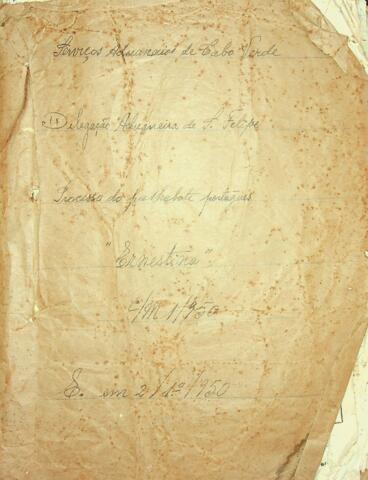 Serviços Aduaneiros de Cabo Verde
Delegação Aduaneira de S. Felipe
Processo do palhabote português
"Ernestina"
C/M 1/950
E. em 2/1º/950